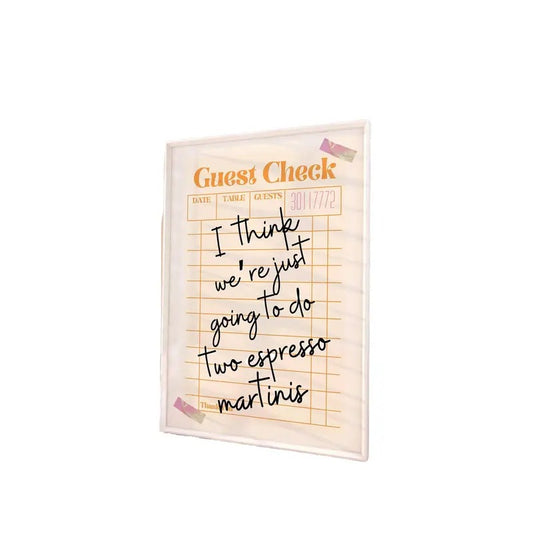 Guest Check
DATE TABLE GUESTS 30117772
I think
we're just
going to do
two espresso
martinis